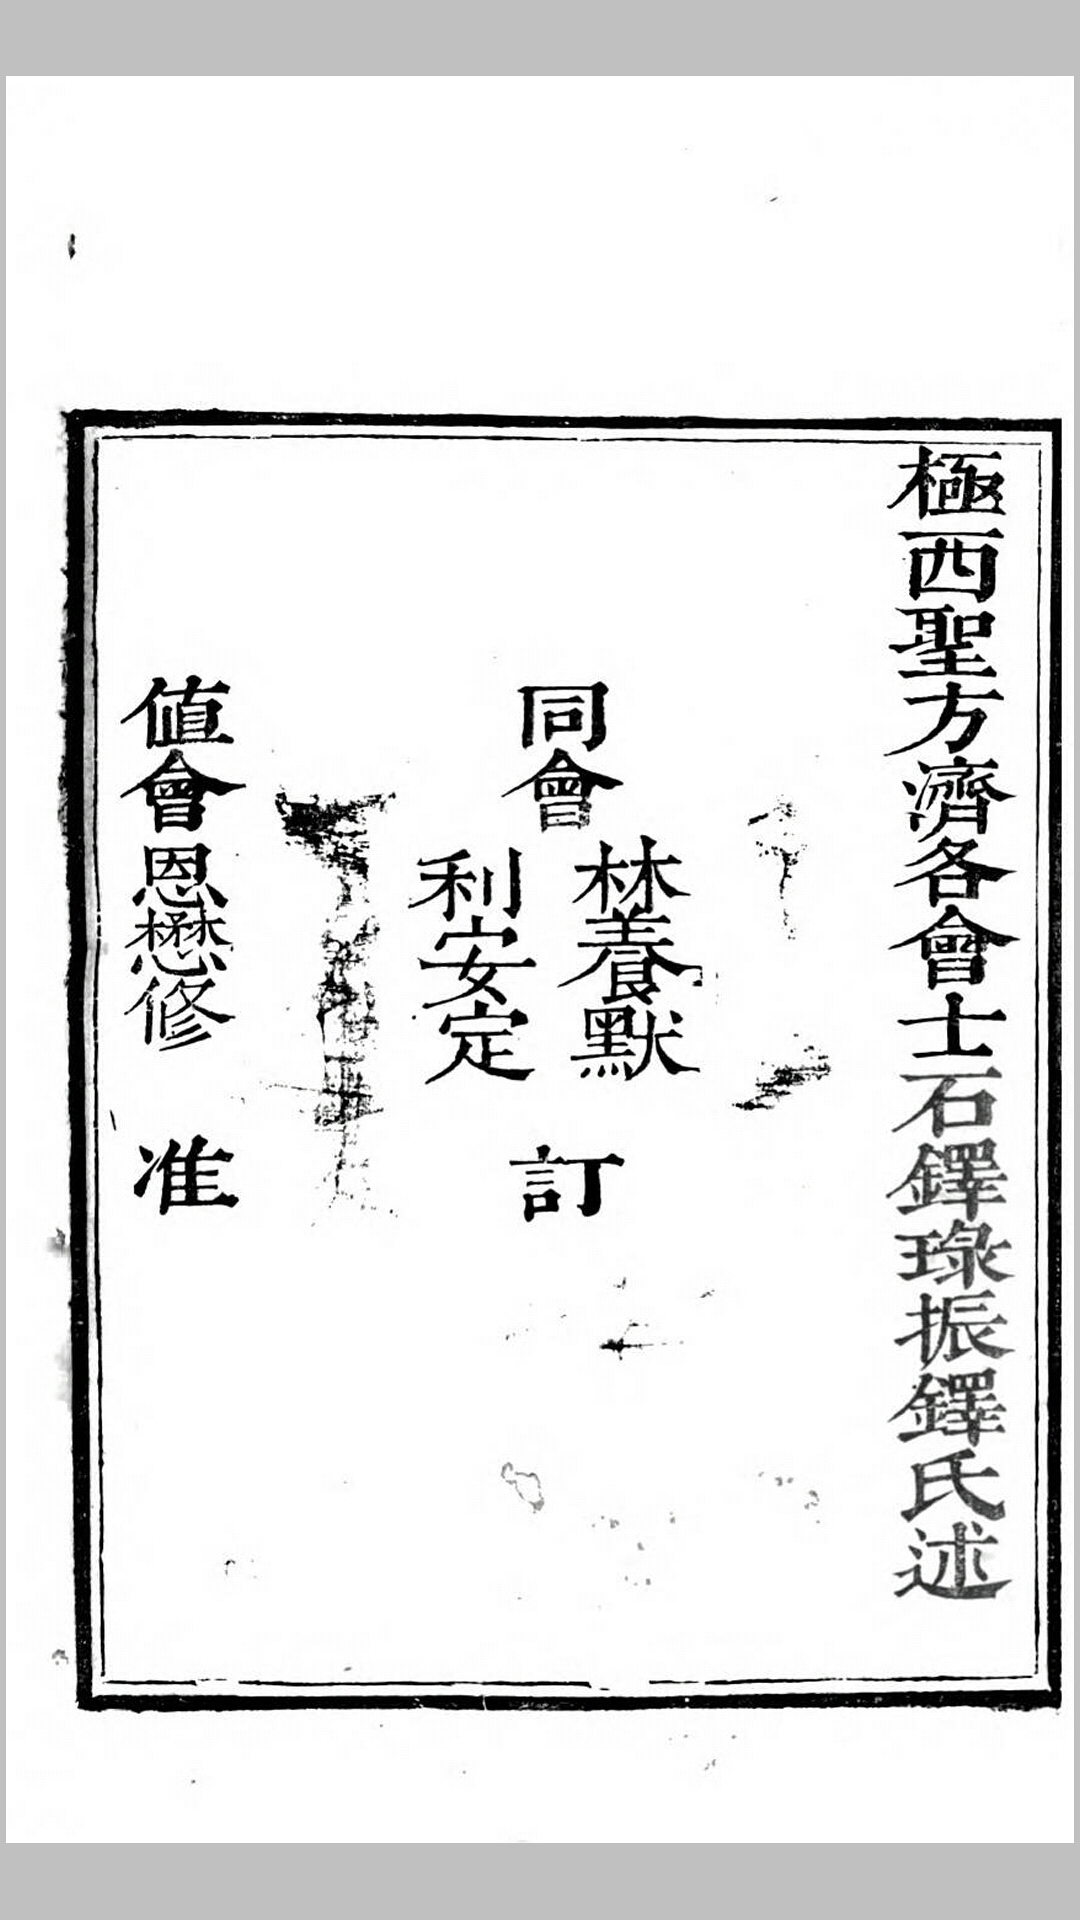 極西聖方濟各會士石鐸琭振鐸氏述
同會
林養默
利安定
訂
值會恩懋修准